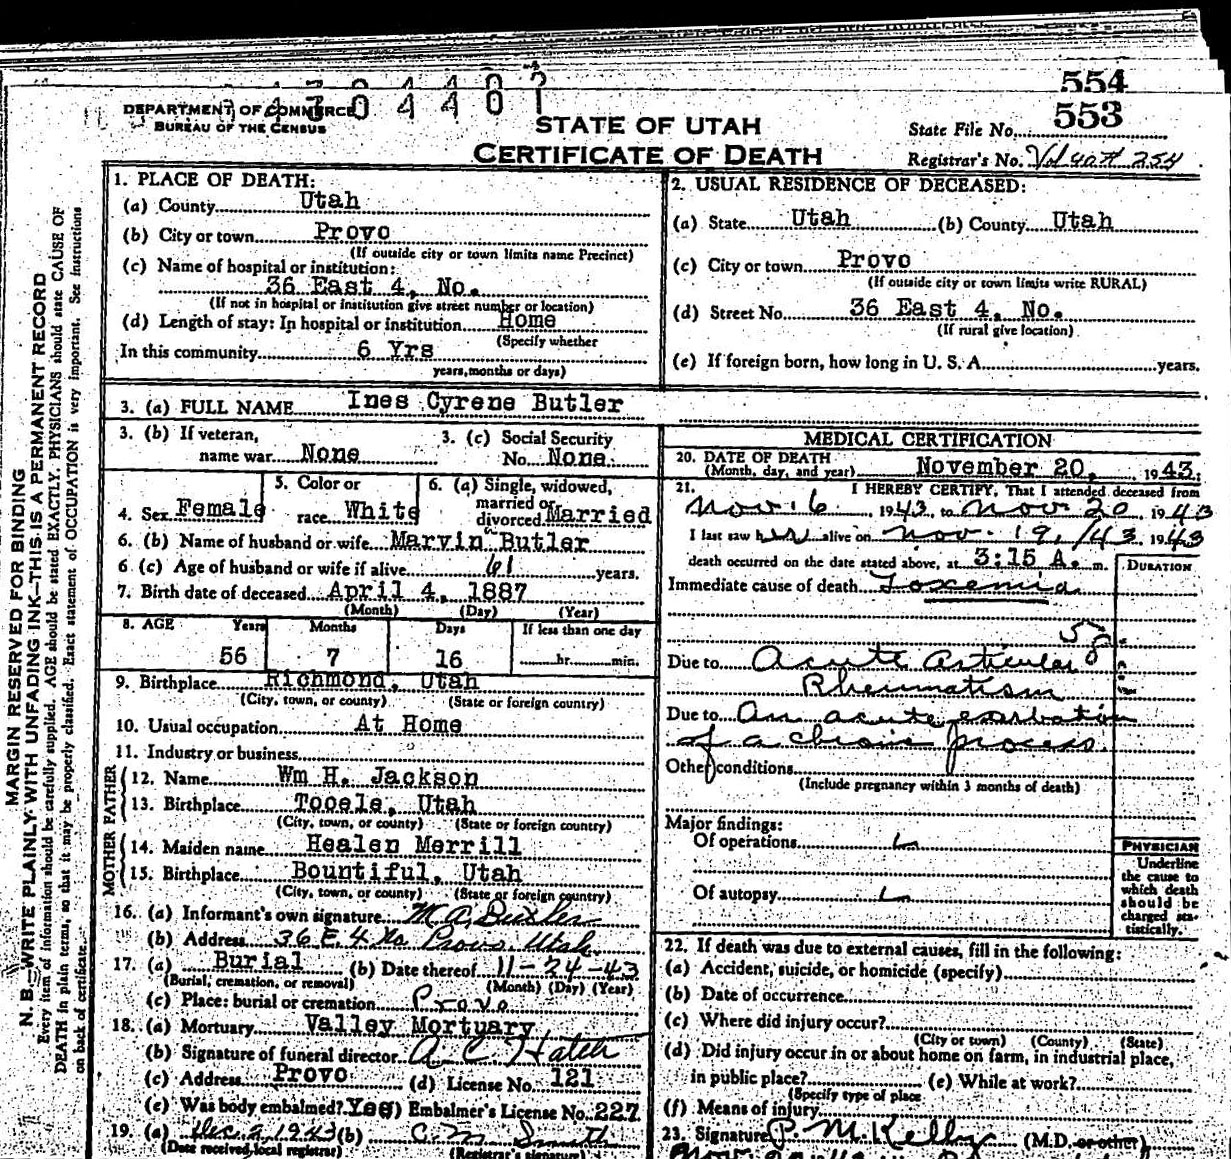 554
DEPARTMENT OF COMMERCE
BUREAU OF THE CENSUS
STATE OF UTAH
CERTIFICATE OF DEATH
State File No. 553
Registrar's No. Vol 40 # 254
MARGIN RESERVED FOR BINDING
N. B.—WRITE PLAINLY WITH UNFADING INK—THIS IS A PERMANENT RECORD
Every item of information should be carefully supplied. AGE should be stated EXACTLY. PHYSICIANS should state CAUSE OF
DEATH in plain terms, so that it may be properly classified. Exact statement of OCCUPATION is very important. See instructions
on back of certificate.
1. PLACE OF DEATH:
(a) County Utah
(b) City or town Provo
(If outside city or town limits name Precinct)
(c) Name of hospital or institution:
36 East 4, No.
(If not in hospital or institution give street number or location)
(d) Length of stay: In hospital or institution Home
(Specify whether
In this community 6 Yrs
years, months or days)
2. USUAL RESIDENCE OF DECEASED:
(a) State Utah (b) County Utah
(c) City or town Provo
(If outside city or town limits write RURAL)
(d) Street No. 36 East 4, No.
(If rural give location)
(e) If foreign born, how long in U. S. A. years.
3. (a) FULL NAME Ines Cyrene Butler
3. (b) If veteran, 3. (c) Social Security
name war None No. None
4. Sex Female
5. Color or
race White
6. (a) Single, widowed,
married or
divorced Married
6. (b) Name of husband or wife Marvin Butler
6. (c) Age of husband or wife if alive 61 years.
7. Birth date of deceased April 4, 1887
(Month) (Day) (Year)
8. AGE Years Months Days If less than one day
56 7 16 hr. min.
9. Birthplace Richmond, Utah
(City, town, or county) (State or foreign country)
10. Usual occupation At Home
11. Industry or business
FATHER
12. Name Wm H. Jackson
13. Birthplace Tooele, Utah
(City, town, or county) (State or foreign country)
MOTHER
14. Maiden name Healen Merrill
15. Birthplace Bountiful, Utah
(City, town, or county) (State or foreign country)
16. (a) Informant's own signature M A Butler
(b) Address 36 E. 4 No Provo. Utah
17. (a) Burial (b) Date thereof 11-24-43
(Burial, cremation, or removal) (Month) (Day) (Year)
(c) Place: burial or cremation Provo
18. (a) Mortuary Valley Mortuary
(b) Signature of funeral director A C Hatch
(c) Address Provo (d) License No. 121
(e) Was body embalmed? Yes) Embalmer's License No. 227
19. (a) Dec. 2 1943 (b) C. M. Smith
(Date received local registrar) (Registrar's signature)
MEDICAL CERTIFICATION
20. DATE OF DEATH
(Month, day, and year) November 20, 1943.
21. I HEREBY CERTIFY, That I attended deceased from
Nov. 6, 1943, to Nov 20 1943
I last saw her alive on Nov. 19, /43, 1943
death occurred on the date stated above, at 3:15 A. m.
DURATION
Immediate cause of death Toxemia
58
Due to Acute Articular
Rheumatism
Due to An acute exerbation
of a chronic process
Other conditions
(Include pregnancy within 3 months of death)
Major findings:
Of operations
Of autopsy
PHYSICIAN
Underline
the cause to
which death
should be
charged sta-
tistically.
22. If death was due to external causes, fill in the following:
(a) Accident, suicide, or homicide (specify)
(b) Date of occurrence
(c) Where did injury occur?
(City or town) (County) (State)
(d) Did injury occur in or about home on farm, in industrial place,
in public place? (e) While at work?
(Specify type of place
(f) Means of injury
23. Signature P. M. Kelly (M.D. or other)